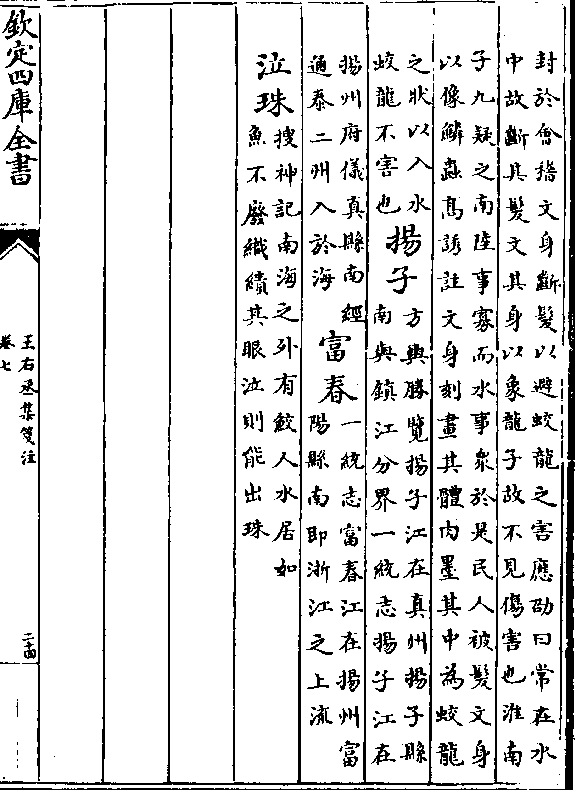 封於會稽文身斷髮以避蛟龍之害應劭曰常在水
中故斷其髮文其身以象龍子故不見傷害也淮南
子九疑之南陸事寡而水事衆於是民人被髮文身
以像鱗蟲髙誘註文身刻畫其體内墨其中為蛟龍
之狀以入水
蛟龍不害也
揚子
方輿勝覽揚子江在真州揚子縣
南與鎮江分界一統志揚子江在
揚州府儀真縣南經
通泰二州入於海
富春
一統志富春江在揚州富
陽縣南即浙江之上流
泣珠
搜神記南海之外有鮫人水居如
魚不廢織績其眼泣則能出珠
欽定四庫全書
王右丞集箋注
卷七
二十四